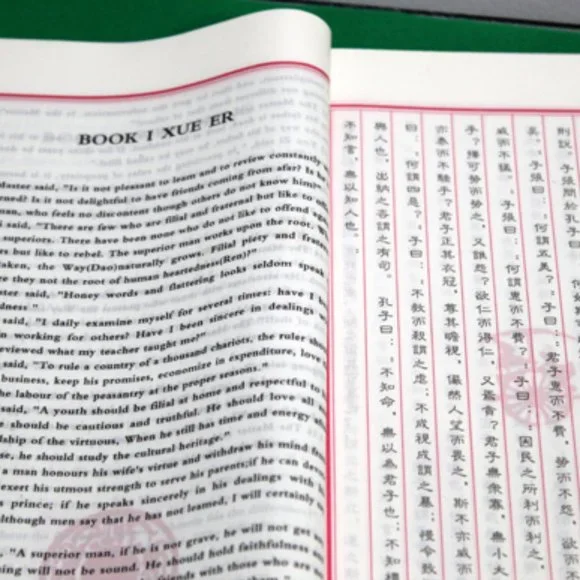 BOOK I XUE ER
said, "Is it not pleasant to learn and to review constantly
? Is it not delightful to have friends coming from afar? Is he
man, who feels no discontent though others do not know him?"
said, "There are few who are filial and fraternal but like to
superiors. There have been none who do not like to offend
but like to rebel. The superior man works upon the root. W
taken, the Way(Dao)naturally grows. Filial piety and frater
re they not the root of human heartedness(Ren)?"
ster said, "Honey words and flattering looks seldom speak
dness."
said, "I daily examine myself for several times: have I b
n working for others? Have I been sincere in dealings w
eviewed what my teacher taught me?"
said, "To rule a country of a thousand chariots, the ruler shou
business, keep his promises, economize in expenditure, love
the labour of the peasantry at the proper seasons."
said, "A youth should be filial at home and respectful to
e should be cautious and truthful. He should love all
dship of the virtuous. When he still has time and energy
se, he should study the cultural heritage."
a man honours his wife's virtue and withdraw his mind from
exert his utmost strength to serve his parents;if he can devo
s prince; if he speaks sincerely in his dealings with
although men say that he has not learned, I will certainly
, "A superior man, if he is not grave, he will not get
ning will not be sound. He should hold faithfulness and
friends with those who are
them."
則説。子張問於孔子
矣。子張曰：何謂五美？子曰：君子惠而不費，勞而不怨，欲而
威而不猛。子張曰：何謂惠而不費？子曰：因民之所利而利之，
乎？擇可勞而勞之，又誰怨？欲仁而得仁，又焉貪？君子無衆寡，無小大
亦泰而不驕乎？君子正其衣冠，尊其瞻視，儼然人望而畏之，斯不亦威而
曰：何謂四惡？子曰：不教而殺謂之虐；不戒視成謂之暴；慢令致
與人也，出納之吝謂之有司。孔子曰：不知命，無以為君子也；
不知言，無以知人也。